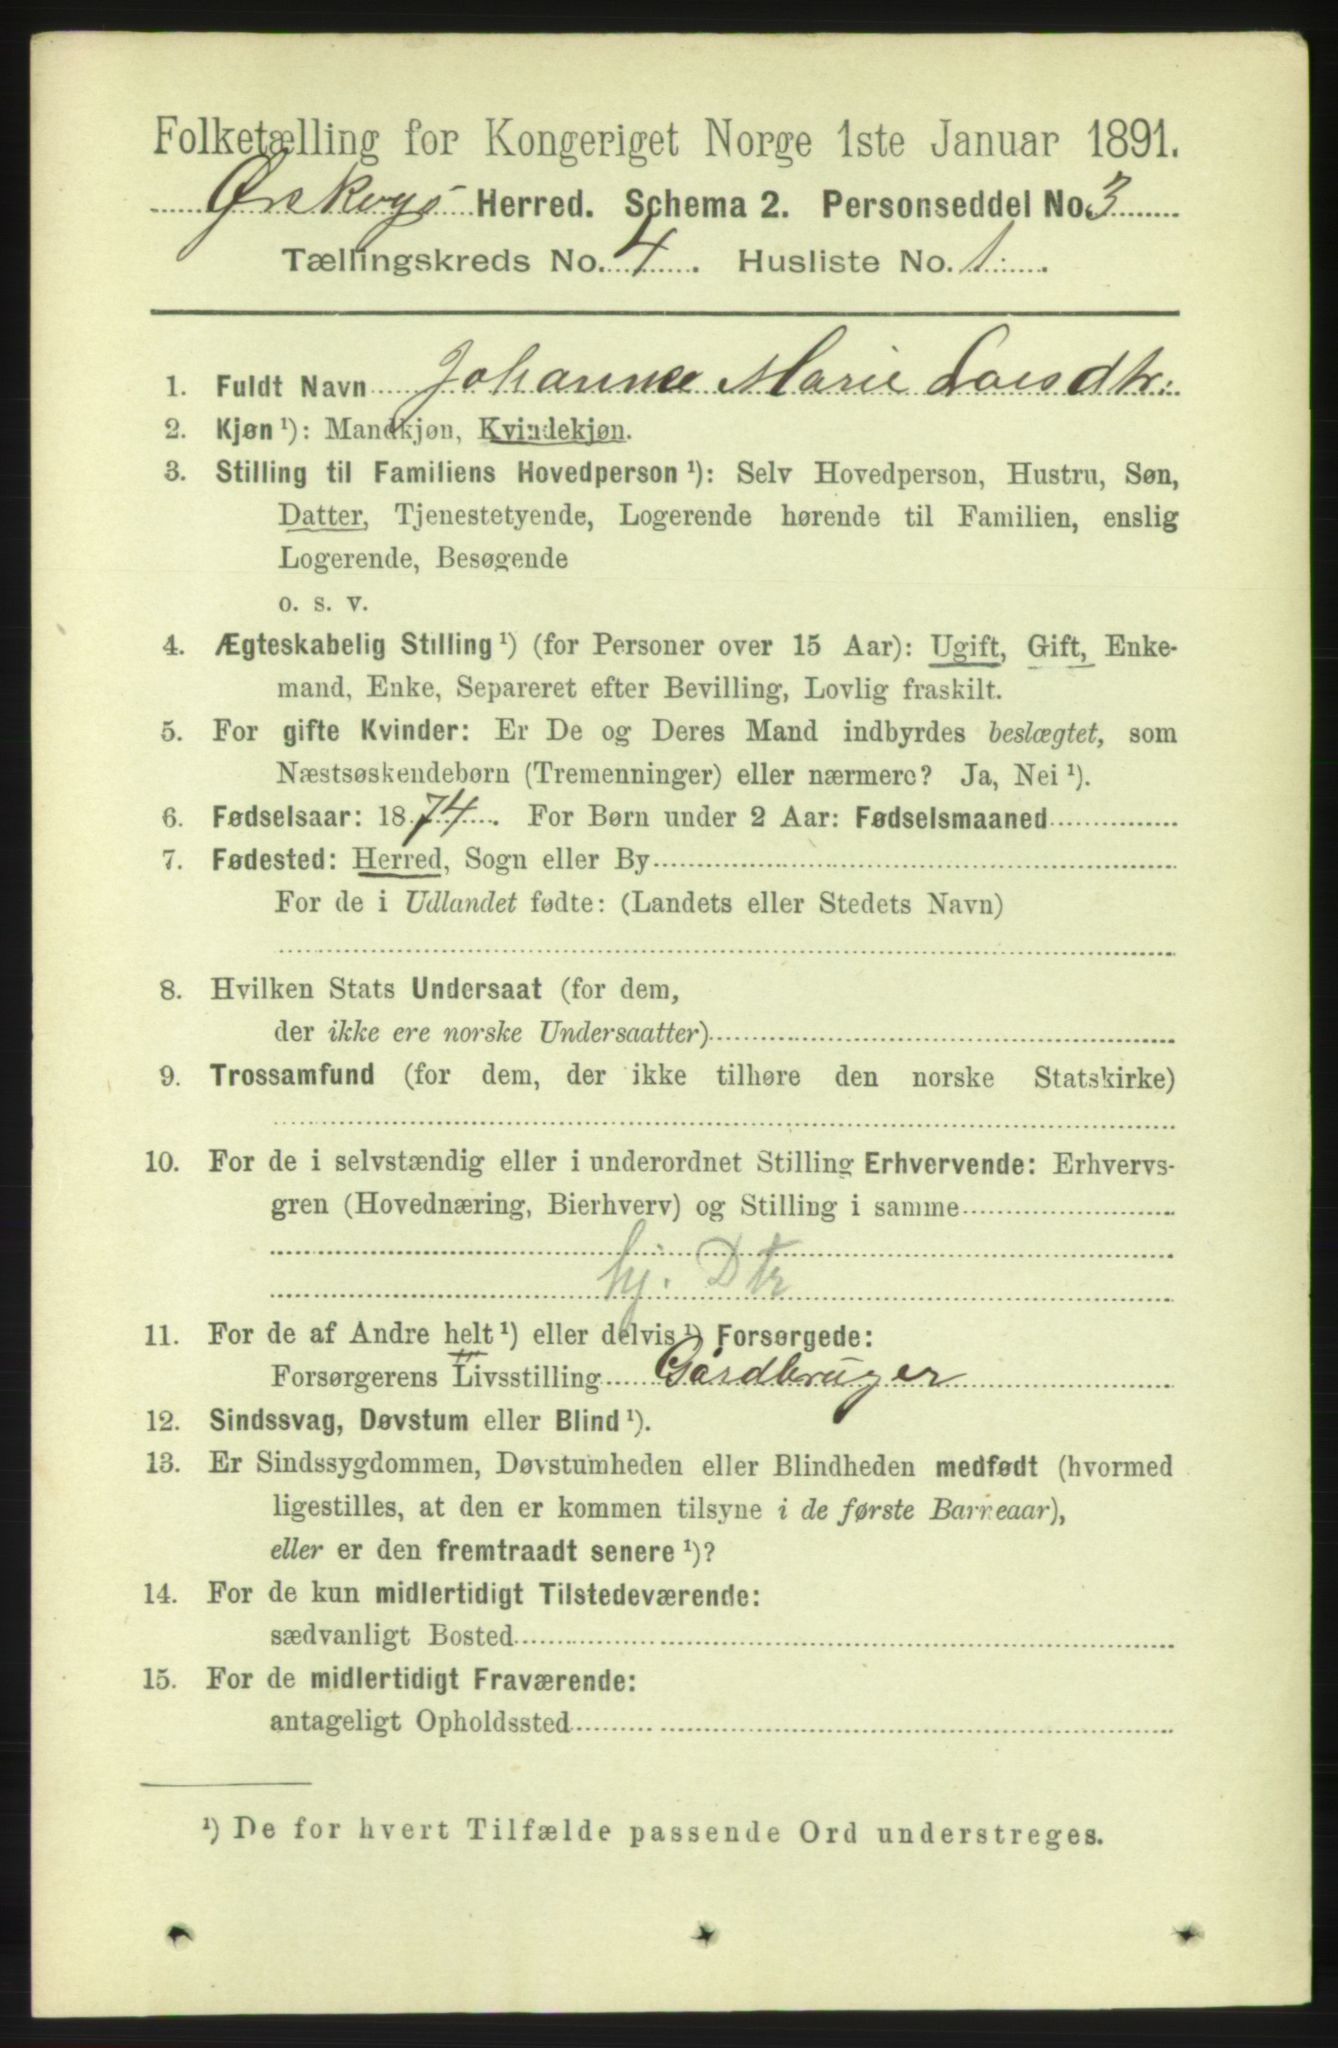 Folketælling for Kongeriget Norge 1ste Januar 1891.
Ørskogs Herred. Schema 2. Personseddel No. 3
Tællingskreds No. 4. Husliste No. 1.
1. Fuldt Navn Johanne Marie Larsdtr.
2. Kjøn ¹): Mandkjøn, Kvindekjøn.
3. Stilling til Familiens Hovedperson ¹): Selv Hovedperson, Hustru, Søn,
Datter, Tjenestetyende, Logerende hørende til Familien, enslig
Logerende, Besøgende
o. s. v.
4. Ægteskabelig Stilling ¹) (for Personer over 15 Aar): Ugift, Gift, Enke-
mand, Enke, Separeret efter Bevilling, Lovlig fraskilt.
5. For gifte Kvinder: Er De og Deres Mand indbyrdes beslægtet, som
Næstsøskendebørn (Tremenninger) eller nærmere? Ja, Nei ¹).
6. Fødselsaar: 1874. For Børn under 2 Aar: Fødselsmaaned
7. Fødested: Herred, Sogn eller By
For de i Udlandet fødte: (Landets eller Stedets Navn)
8. Hvilken Stats Undersaat (for dem,
der ikke ere norske Undersaatter)
9. Trossamfund (for dem, der ikke tilhøre den norske Statskirke)
10. For de i selvstændig eller i underordnet Stilling Erhvervende: Erhvervs-
gren (Hovednæring, Bierhverv) og Stilling i samme
hj. Dtr
11. For de af Andre helt ¹) eller delvis ¹) Forsørgede:
Forsørgerens Livsstilling Gårdbruger
12. Sindssvag, Døvstum eller Blind ¹).
13. Er Sindssygdommen, Døvstumheden eller Blindheden medfødt (hvormed
ligestilles, at den er kommen tilsyne i de første Barneaar),
eller er den fremtraadt senere ¹)?
14. For de kun midlertidigt Tilstedeværende:
sædvanligt Bosted
15. For de midlertidigt Fraværende:
antageligt Opholdssted
¹) De for hvert Tilfælde passende Ord understreges.